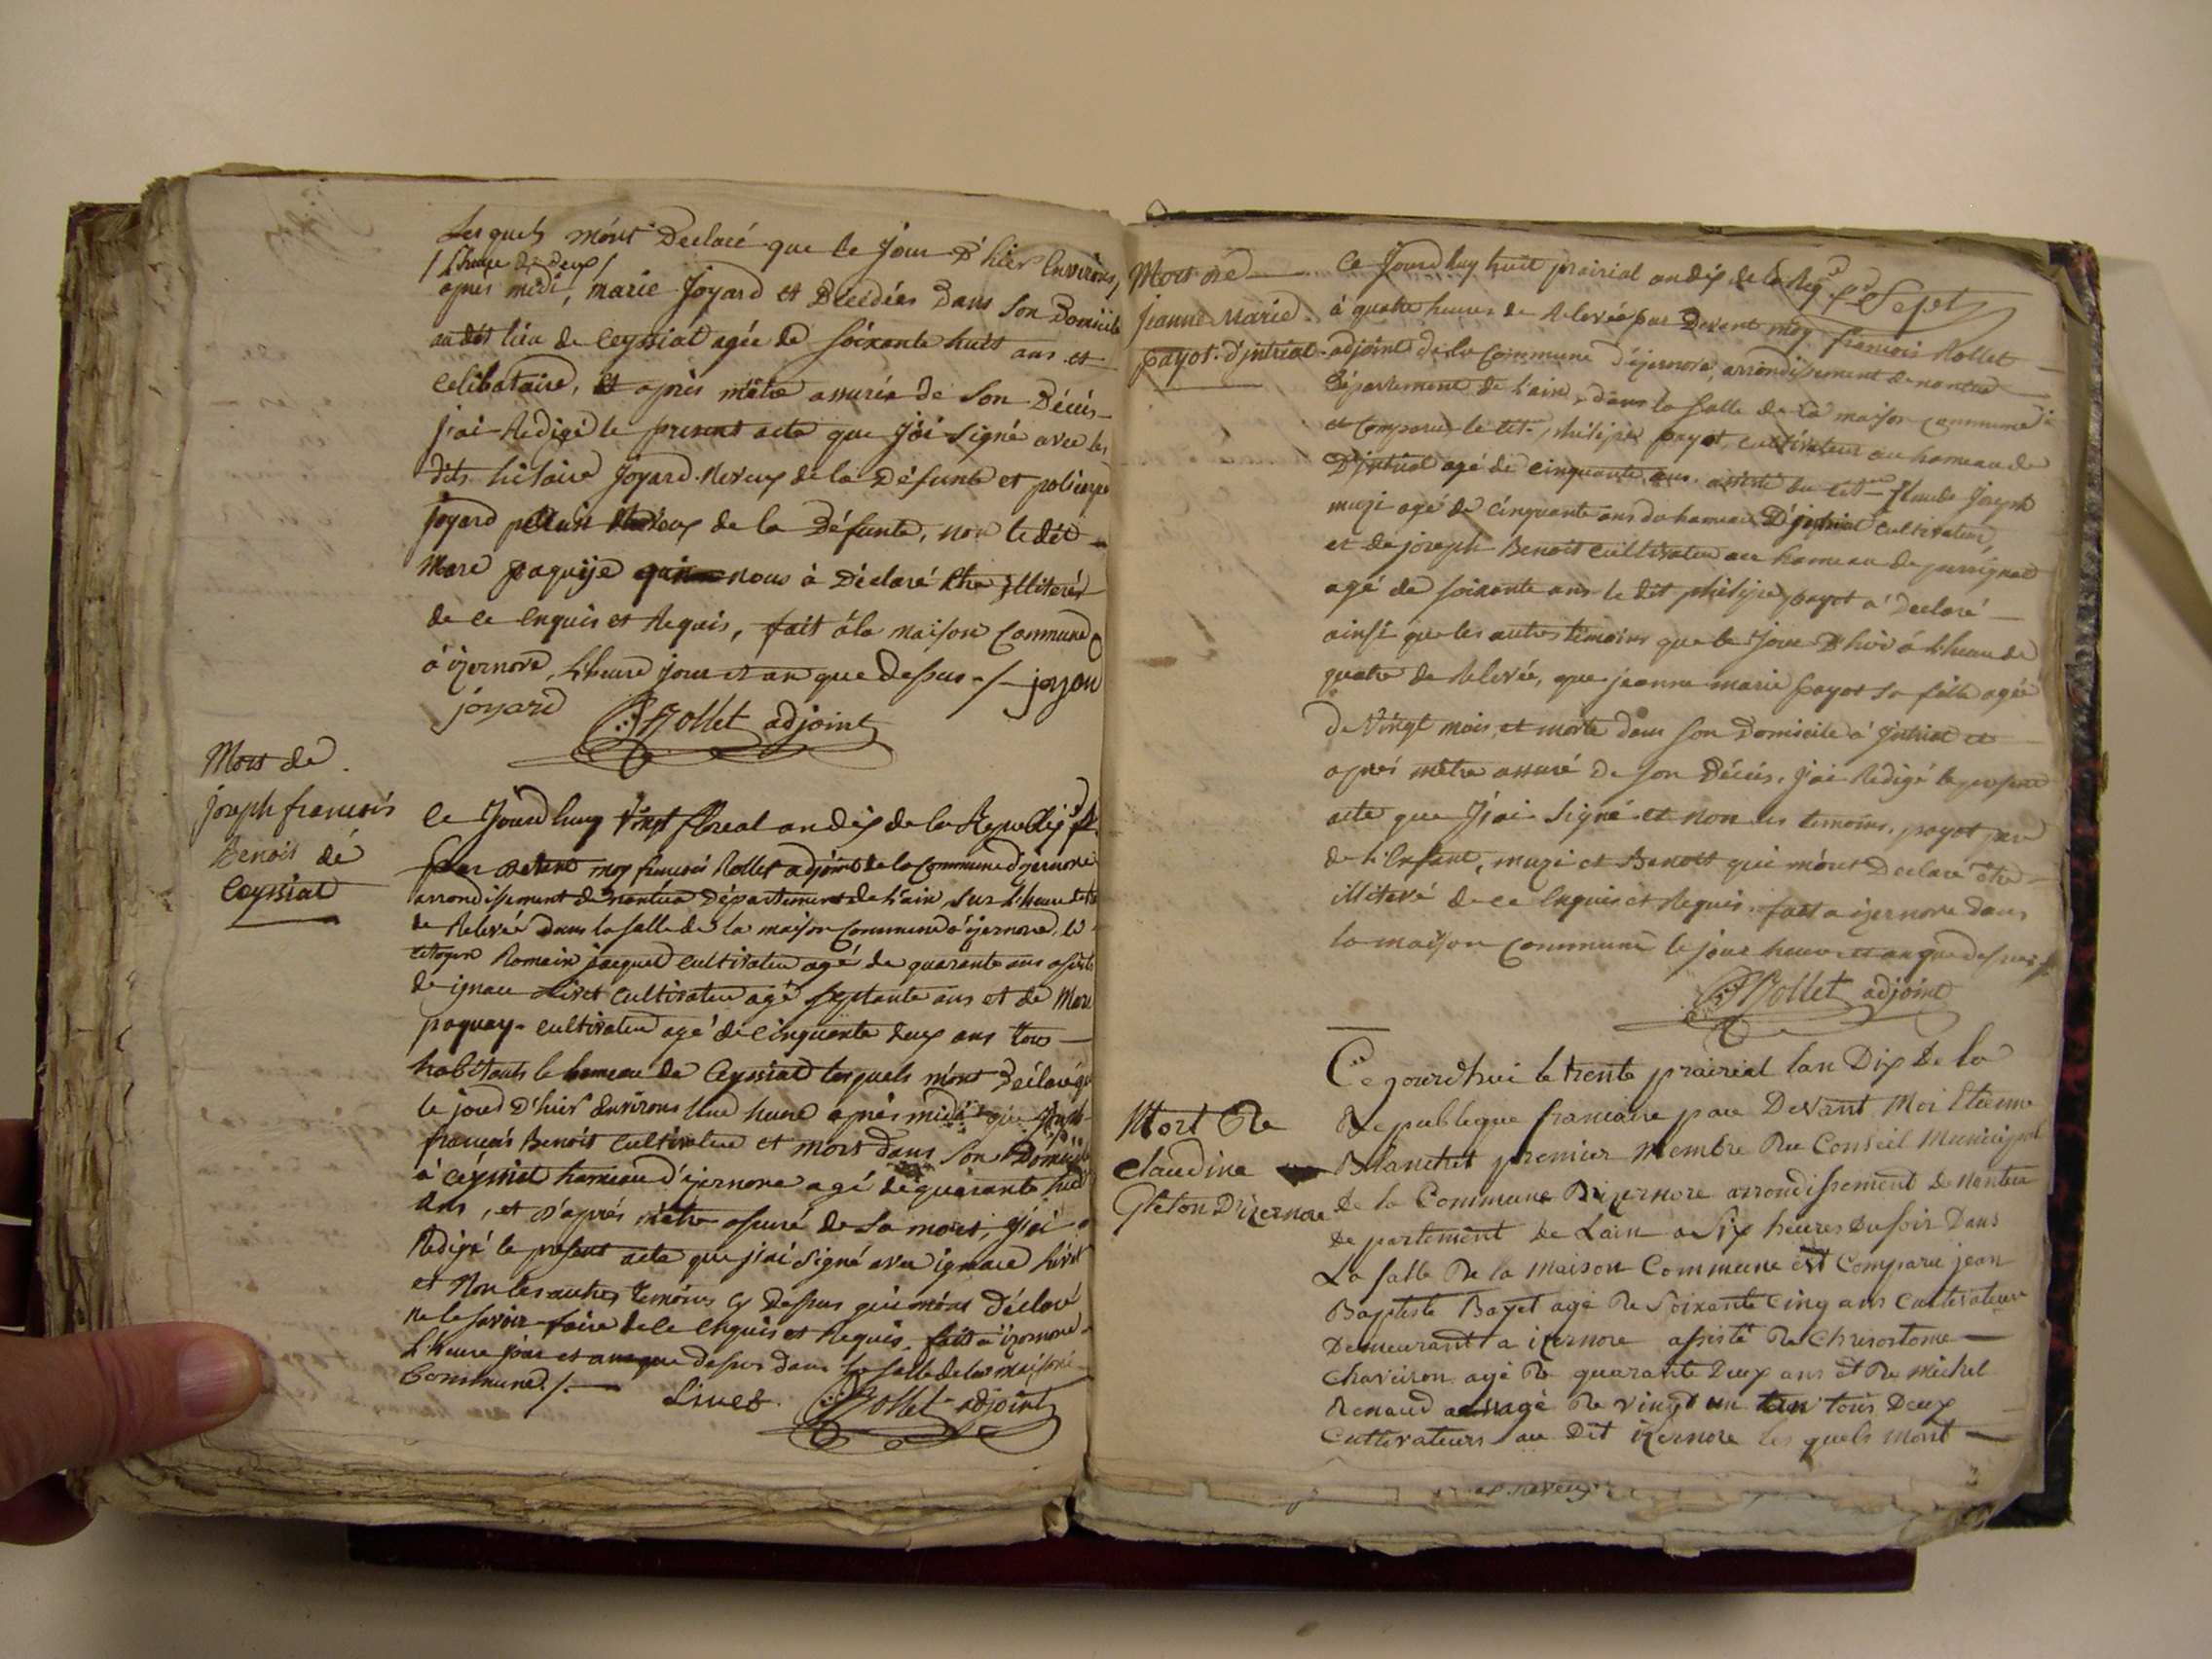 Les quels mónt Declaré que le jour D'hier Environs
/ l'heure de deux /
apres midi, marie Joyard et Décédées Dans son Domicile
au dit lieu de Ceyssiat agée de soixante huit ans et
Celibataire, et apres mêtre assurée de son Décés
j'ai Redigé le present acte que J'ai signé avec les
dits hilaire Joyard Neveux de la Défunte et policarpe
joyard Neveux de la Défunte, non le dit
Marc paquije nous à Déclaré être Illiteré
de ce Enquis et Requis, fait à la maison Commune
à izernore, L'heure jour et an que dessus ./. joyard
joyard Rollet adjoint
Mort de
joseph francois
Benoit dé
Ceyssiat
Ce Jourd'huy vingt floreal an dix de la Republiq
par devant moy francois Rollet adjoint de la Commune d'izernore
arrondissement de nantua Département de L'ain, sur L'heure
de Relevée dans la salle de la maison Commune d'izernore, le
citoyen Romain jacquet cultivateur agé de quarante ans assisté
de ignace Livet cultivateur agé septante ans et de Marc
paquay cultivateur agé de Cinquante deux ans tous
habitants le hameau de Ceyssiat lesquels mónt Déclaré que
le jour D'hier Environs Une heure aprés midi que Joseph
francois Benoit Cultivateur et mort dans son Domicile
à Ceyssiat hameau d'izernore agé de quarante huit
ans, et d'aprés mêtre assuré de sa mort, j'ai
Redigé le present acte que j'ai signé avec ignace livet
et Non les autres temoins cy Dessus qui mónt Déclaré
ne le savoir faire de ce Enquis et Requis. fait a izernore
L'heure jour et an que dessus dans la salle de la maison
Commune ./. Livet Rollet adjoint
Mort de
jeanne Marie
payot d'jntriat
Ce Jourd'huy huit prairial an dix de la Rep.
à quatre heures de Relevée par Devant moy francois Rollet
adjoint de la Commune d'izernore, arrondissement de nantua
Département de l'ain, dans la salle de la maison commune
et Comparu le cit. philipe payot, cultivateur au hameau de
D'jntriat agé de cinquante ans, assisté du cit. Claude Joseph
muzi agé de cinquante ans du hameau D'jntriat cultivateur
et de joseph Benoit Cultivateur au hameau de perignat
agé de soixante ans le dit philipe payot a Declaré
ainsi que les autres témoins que le jour D'hier à L'heure de
quatre de Relevée, que jeanne marie payot sa fille agée
de Vingt mois, et morte dans son Domicile à jntriat et
aprés mêtre assuré de son Décés. j'ai Redigé le present
acte que J'ai signé et non les temoins, payot pere
de L'Enfant, muzi et Benoit qui mónt Declaré être
illiteré de ce Enquis et Requis. fait a izernore dans
la maison Commune le jour heure et an que dessus ./.
Rollet adjoint
Mort De
Claudine
Gleton D'izernore
Cejourd'hui le trente prairial lan Dix de la
Republique francaise par Devant Moi Etienne
Blanchet premier Membre Du Conseil Municipal
de la Commune D'izernore arrondissement de nantua
departement de Lain a Six heures du soir Dans
La salle De la Maison Commune est Comparu jean
Baptiste Bayet agé De Soixante Cinq ans Cultivateur
Demeurant a izernore assisté De Chrisostome
Charviron agé De quarante Deux ans et De Michel
Renaud agé De vingt un tous Deux
Cultivateurs au Dit izernore les quels Mont